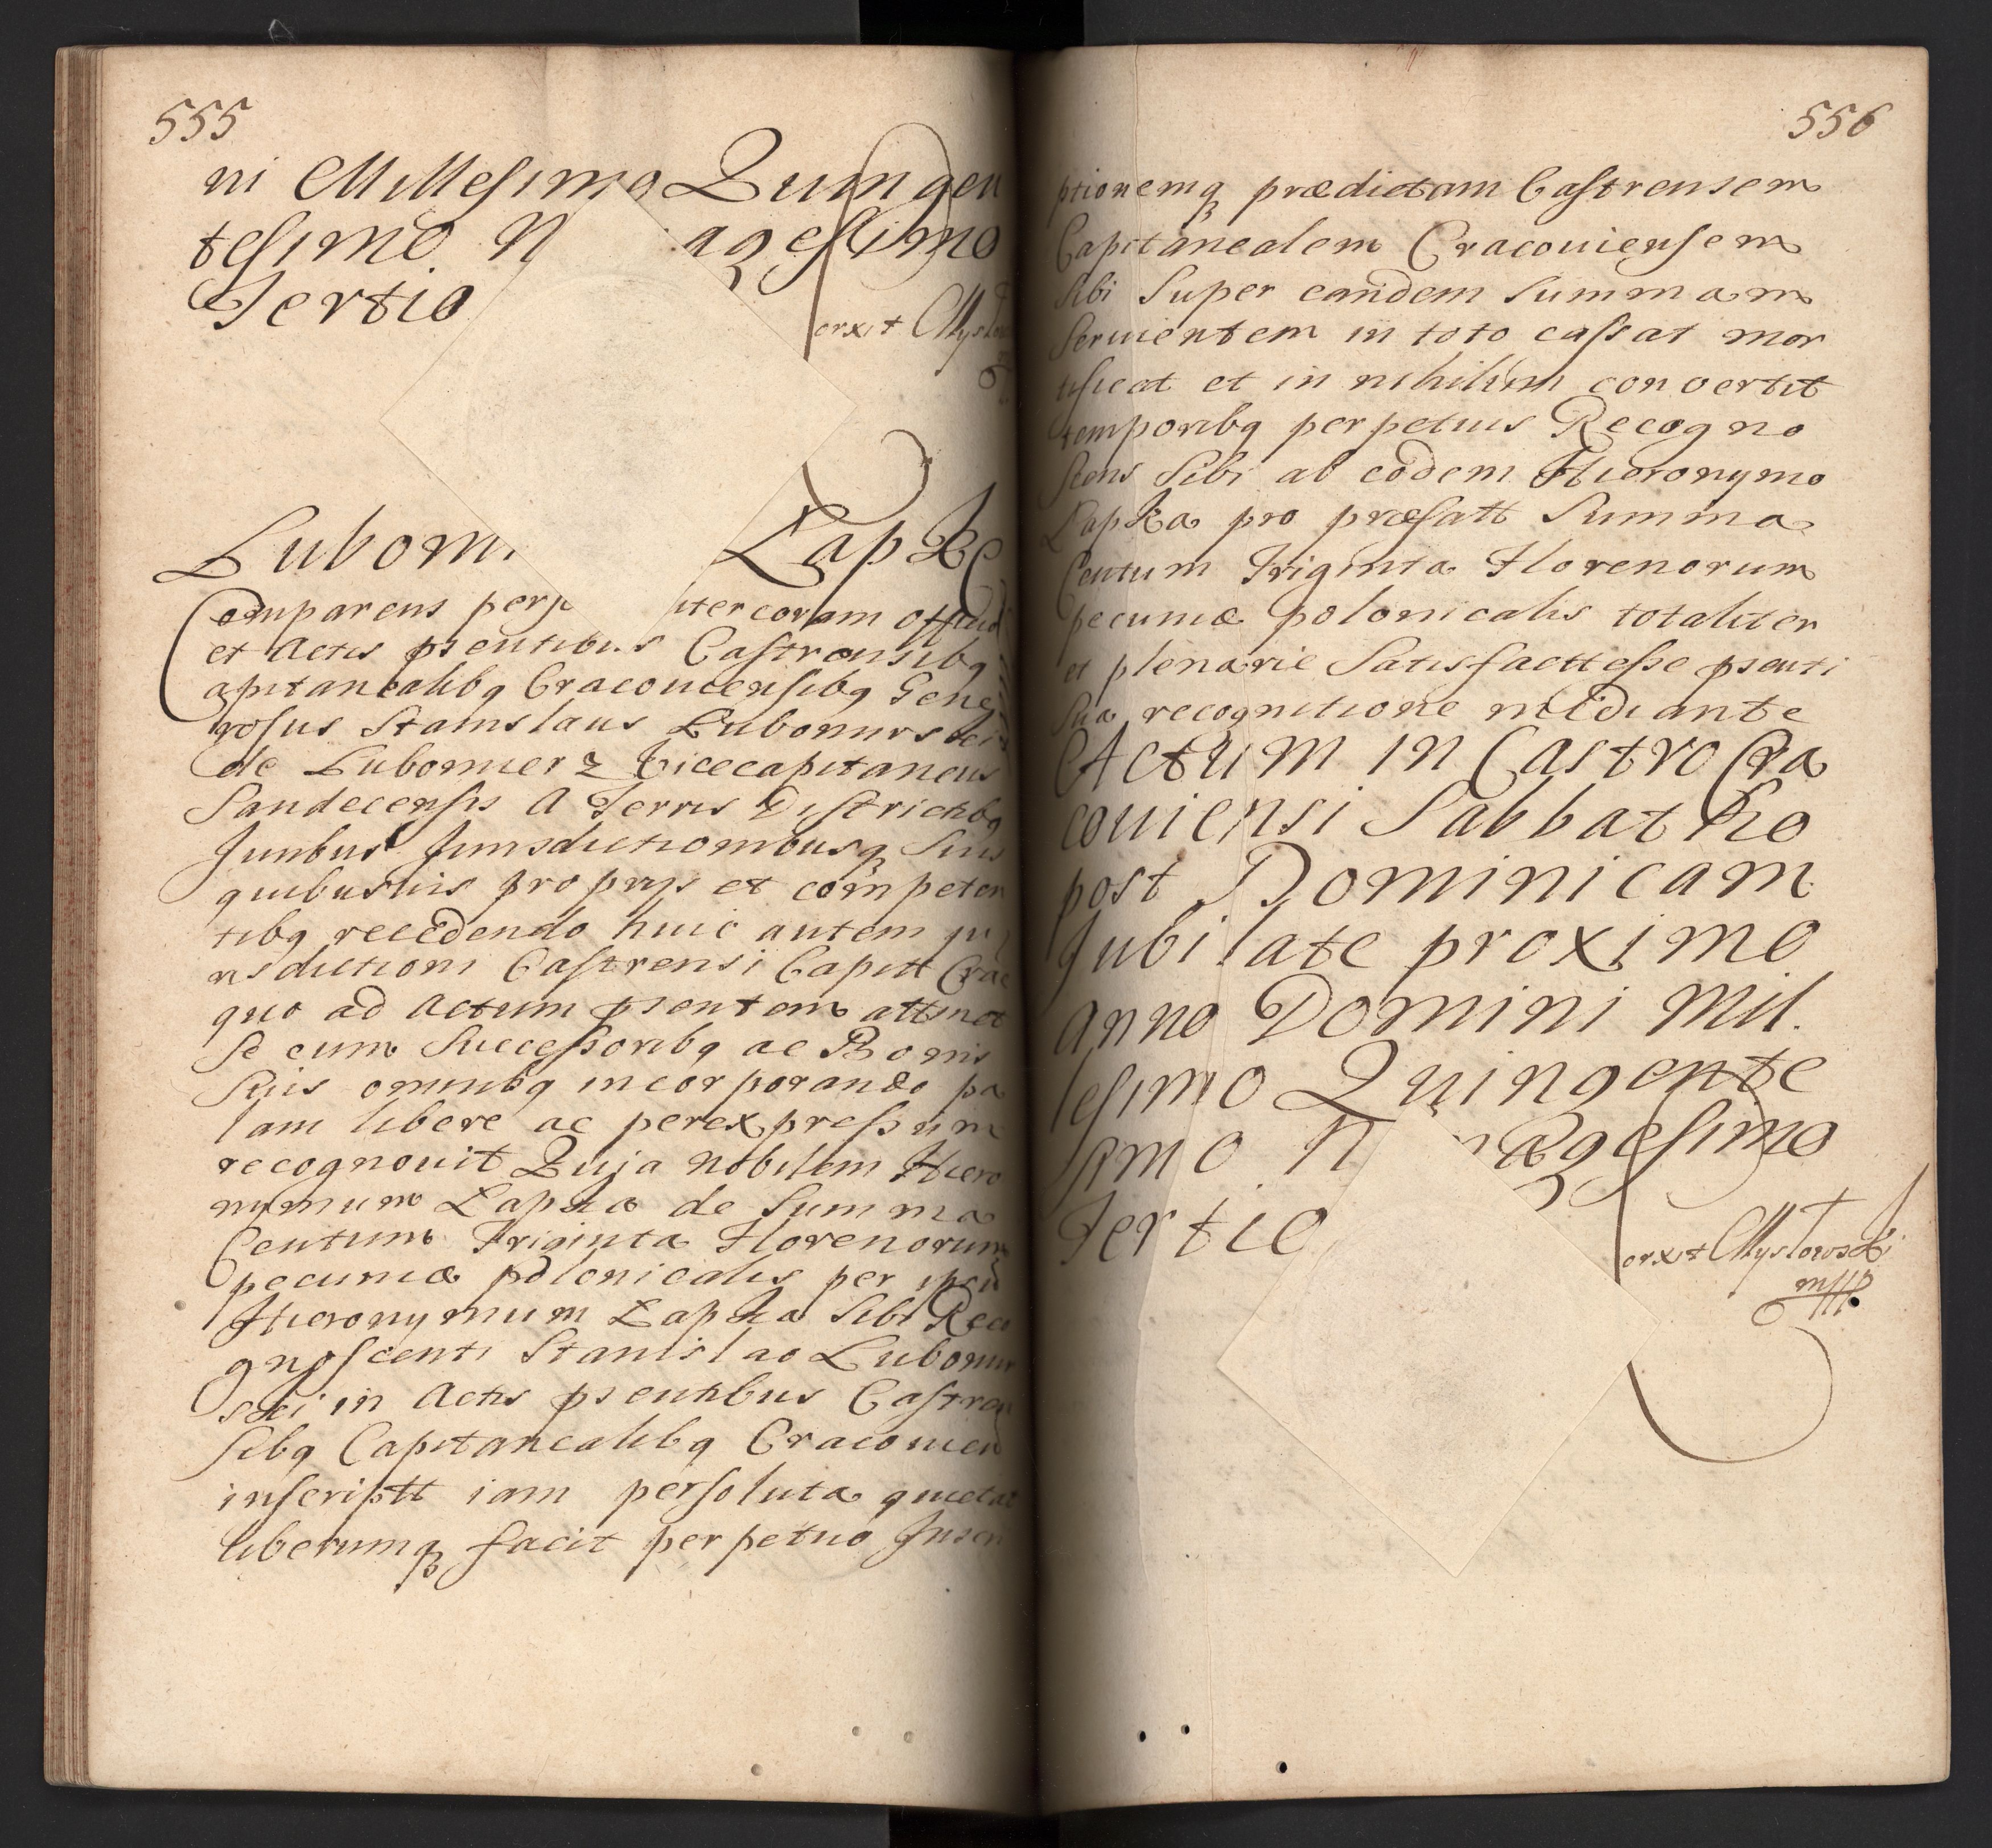 555
ni Millesimo Quingen
tesimo N agesimo
Tertio
orxit Myst
Lubomi Lapke
Comparens perso iter coram officio
et Actis psentibus Castrensibq
apitanealibq Cracouiensibq Gene
rosus Stanislaus Lubomirski
de Lubomierz Vicecapitaneus
Sandecensis A Terris Districtibq
Juribus Jurisdictionibusq Suis
quibusuis proprijs et competen
tibq recedendo huic autem ju
risdictioni Castrensi Capitt Crac
quo ad Actum psentem attinet
Se cum Successoribq ac Bonis
Suis omnibq incorporando pa
lam libere ac per expressum
recognouit Quja Nobilem Hiero
nymum Lapka de Summa
Centum Triginta Florenorum
pecuniæ polonicalis per ipsū
Hieronymum Lapka Sibi Reco
gnoscenti Stanislao Lubomir
ski in Actis psentibus Castren
sibq Capitanealibq Cracouien
inscriptt iam persoluta quietat
liberumq facit perpetuo Inscri
556
ptionemq prædictam Castrensem
Capitanealem Cracouiensem
Sibi Super eandem Summam
Seruientem in toto cassat mor
tificat et in nihilum conuertit
temporibq perpetuis Recogno
scens Sibi ab eodem Hieronymo
Lapka pro præfatt Summa
Centum Triginta Florenorum
pecuniæ polonicalis totaliter
et plenarie Satisfactt esse psenti
Sua recognitione mediante
Actum in Castro Cra
couiensi Sabbatho
post Dominicam
Jubilate proximo
anno Domini Mil.
lesimo Quingente
simo N nagesimo
Tertio
orxit Mystowski
mpp.